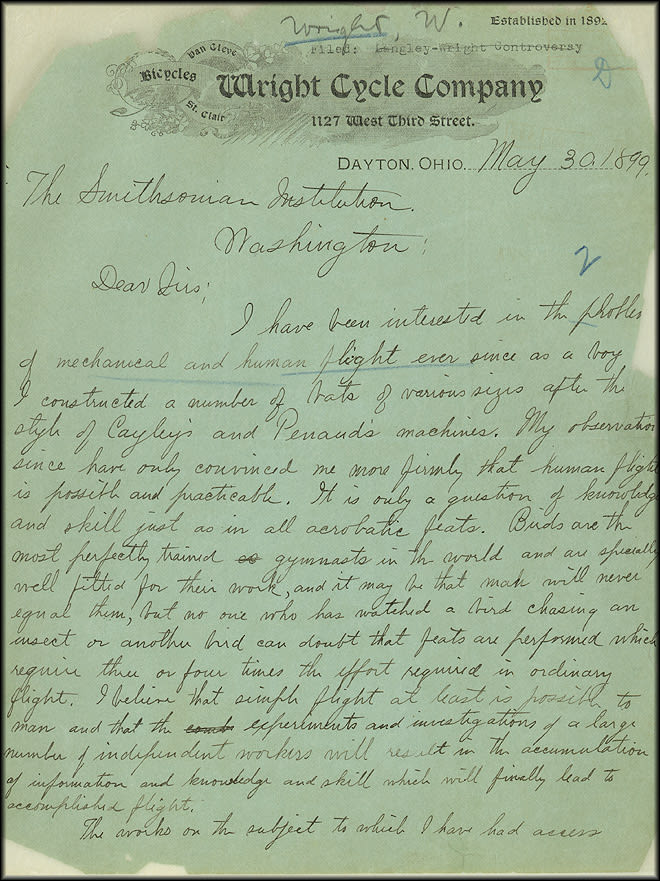 Wright, W.
Established in 1892
Filed: Langley-Wright Controversy
Van Cleve
Bicycles
St. Clair
Wright Cycle Company
1127 West Third Street.
DAYTON, OHIO. May 30, 1899.
The Smithsonian Institution.
Washington;
Dear Sirs;
2
I have been interested in the problem
of mechanical and human flight ever since as a boy
I constructed a number of bats of various sizes after the
style of Cayley's and Penaud's machines. My observations
since have only convinced me more firmly that human flight
is possible and practicable. It is only a question of knowledge
and skill just as in all acrobatic feats. Birds are the
most perfectly trained gymnasts in the world and are specially
well fitted for their work, and it may be that man will never
equal them, but no one who has watched a bird chasing an
insect or another bird can doubt that feats are performed which
require three or four times the effort required in ordinary
flight. I believe that simple flight at least is possible to
man and that the experiments and investigations of a large
number of independent workers will result in the accumulation
of information and knowledge and skill which will finally lead to
accomplished flight.
The works on the subject to which I have had access